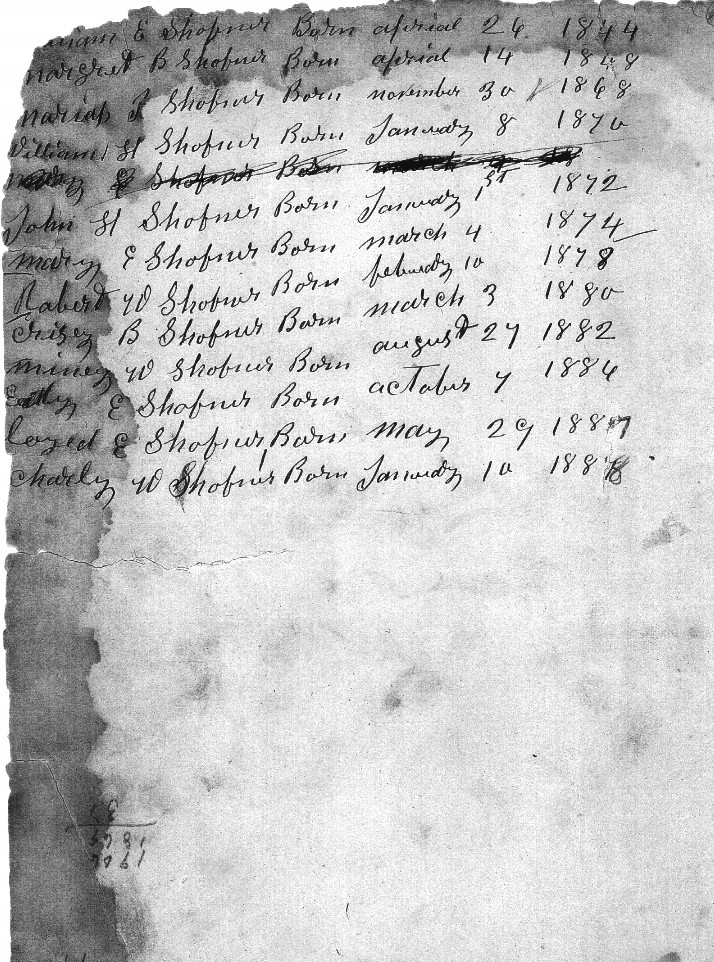 William E Shofner Born aprial 26. 1844
margret B Shofner Born aprial 14 1848
mariah J Shofner Born november 30 1868
William H Shofner Born January 8 1870
Shofner Born march
John H Shofner Born January 1st 1872
mary E Shofner Born march 4 1874
Robert W Shofner Born febuady 10 1878
Crisey B Shofner Born march 3 1880
miney W Shofner Born august 27 1882
E Shofner Born october 7 1884
loyed E Shofner Born may 29 1887
charley W Shofner Born January 10 1888